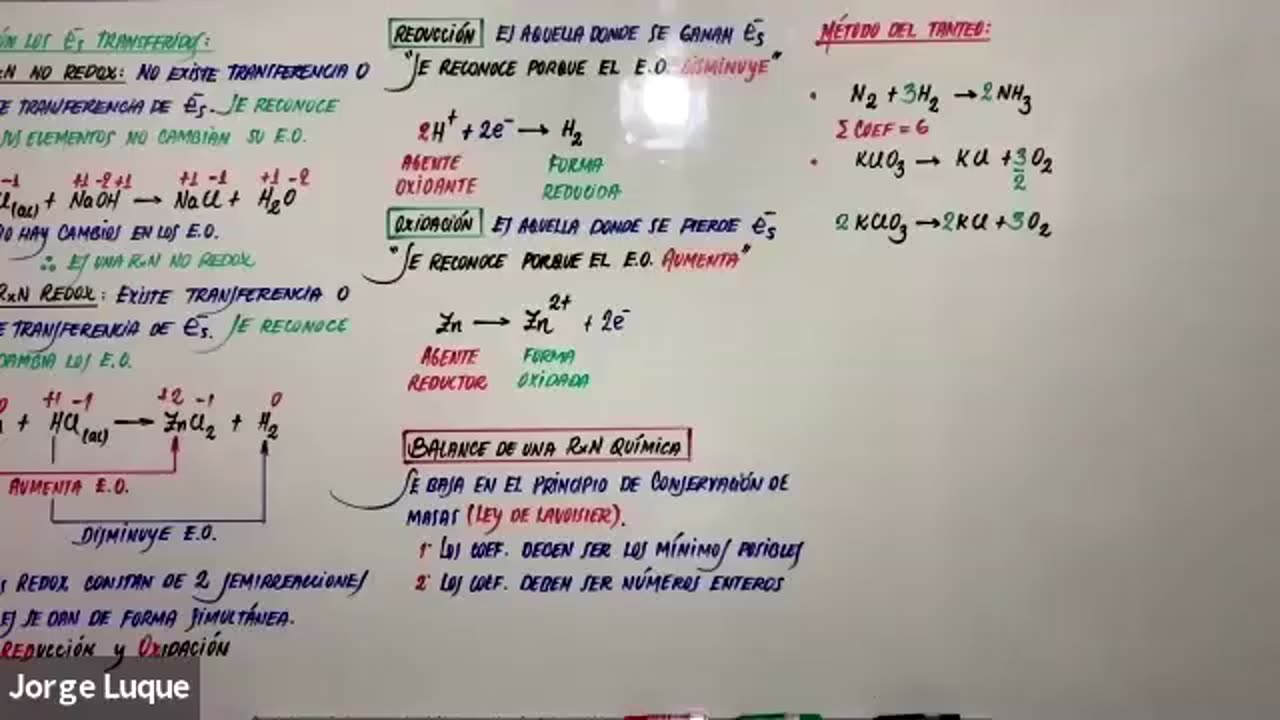 ÓN LOS e⁻s TRANSFERIDOS:
RxN NO REDOX: NO EXISTE TRANSFERENCIA O
E TRANSFERENCIA DE e⁻s. SE RECONOCE
SUS ELEMENTOS NO CAMBIAN SU E.O.
-1 +1 -2 +1 +1 -1 +1 -2
Cl(ac) + NaOH → NaCl + H₂O
NO HAY CAMBIOS EN LOS E.O.
∴ ES UNA RxN NO REDOX
RxN REDOX: EXISTE TRANSFERENCIA O
E TRANSFERENCIA DE e⁻s. SE RECONOCE
CAMBIA LOS E.O.
0 +1 -1 +2 -1 0
+ HCl(ac) → ZnCl₂ + H₂
AUMENTA E.O.
DISMINUYE E.O.
S REDOX CONSTAN DE 2 SEMIRREACCIONES
ES SE DAN DE FORMA SIMULTÁNEA.
REDUCCIÓN y OXIDACIÓN
REDUCCIÓN ES AQUELLA DONDE SE GANAN e⁻s
"SE RECONOCE PORQUE EL E.O. DISMINUYE"
2H⁺ + 2e⁻ → H₂
AGENTE FORMA
OXIDANTE REDUCIDA
OXIDACIÓN ES AQUELLA DONDE SE PIERDE e⁻s
"SE RECONOCE PORQUE EL E.O. AUMENTA"
Zn → Zn²⁺ + 2e⁻
AGENTE FORMA
REDUCTOR OXIDADA
BALANCE DE UNA RxN QUÍMICA
SE BASA EN EL PRINCIPIO DE CONSERVACIÓN DE
MASAS (LEY DE LAVOISIER).
1° LOS COEF. DEBEN SER LOS MÍNIMOS POSIBLES
2° LOS COEF. DEBEN SER NÚMEROS ENTEROS
MÉTODO DEL TANTEO:
• N₂ + 3H₂ → 2NH₃
Σ COEF = 6
• KClO₃ → KCl + 3/2 O₂
2KClO₃ → 2KCl + 3O₂
Jorge Luque